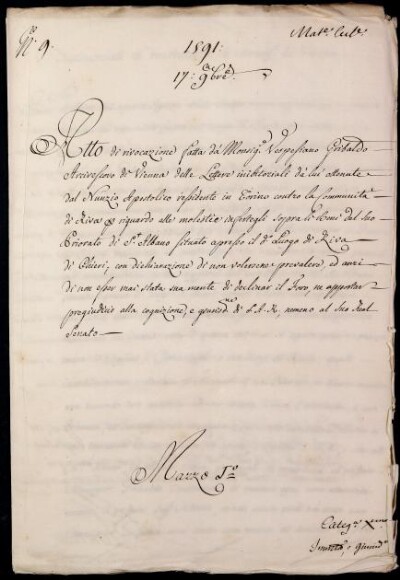 N.° 9.
Mat.e Ecl.e
1591:
17: 9bre
Atto di rivocazione fatta dà Monsig.r Vespesiano Gribaldo
Arcivescovo di Vienna delle Lettere inibitoriali dà lui ottenute
dal Nunzio Apostolico residente in Torino contro la Communità
di Riva à riguardo alle molestie inferitegli sopra li beni del suo
Priorato di S.t Albano situato appresso il d.o Luogo di Riva
di Chieri; con dichiarazione di non volersene prevalere, ed anzi
di non esser mai stata sua mente di declinar il Foro, ne apportar
pregiudizio alla cognizione, e giurisd.ne di S. A. R., nemeno al suo Real
Senato
Mazzo 1.o
Categ.a X.ma
e Giurisd.e